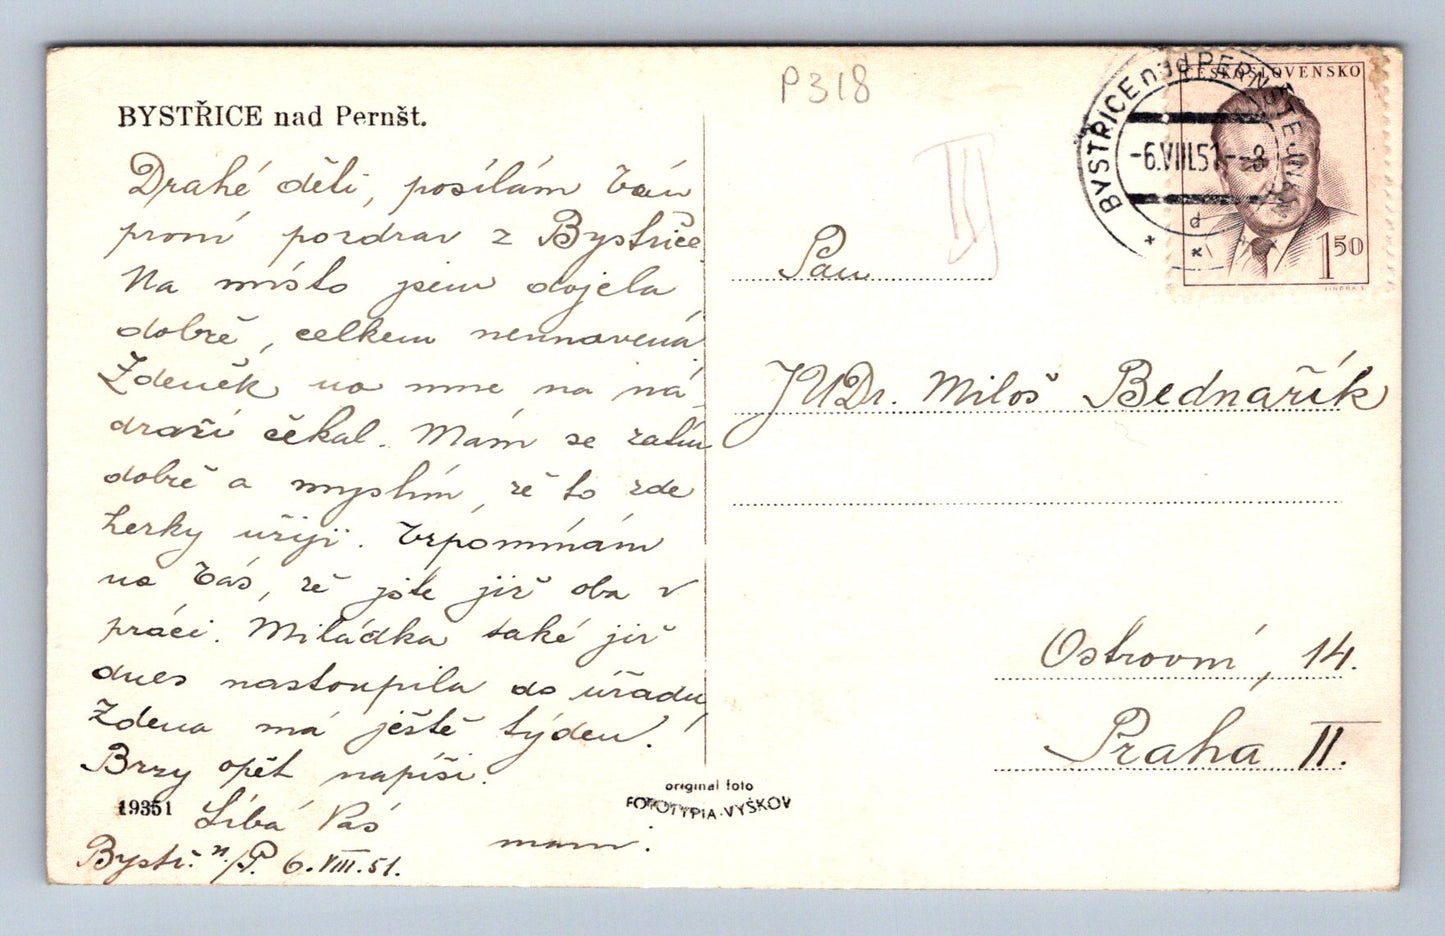 P318
BYSTŘICE nad Pernšt.
Drahé děti, posílám Vám
první pozdrav z Bystřice
Na místo jsem dojela
dobře, celkem neunavená
Zdeněk na mne na ná-
draží čekal. Mám se zatím
dobře a myslím, že to zde
hezky užiji. Vzpomínám
na Vás, že jste již oba v
práci. Miládka také již
dnes nastoupila do úřadu,
Zdena má ještě týden.
Brzy opět napíši.
Líbá Vás
mami.
19351
Bystř. n/P. 6.VIII.51.
original foto
FOTOTYPIA-VYŠKOV
ČESKOSLOVENSKO
1 50
BYSTŘICE nad PERNŠTEJNEM
-6.VIII.51--8
d
Pan
JUDr. Miloš Bednařík
Ostrovní, 14.
Praha II.